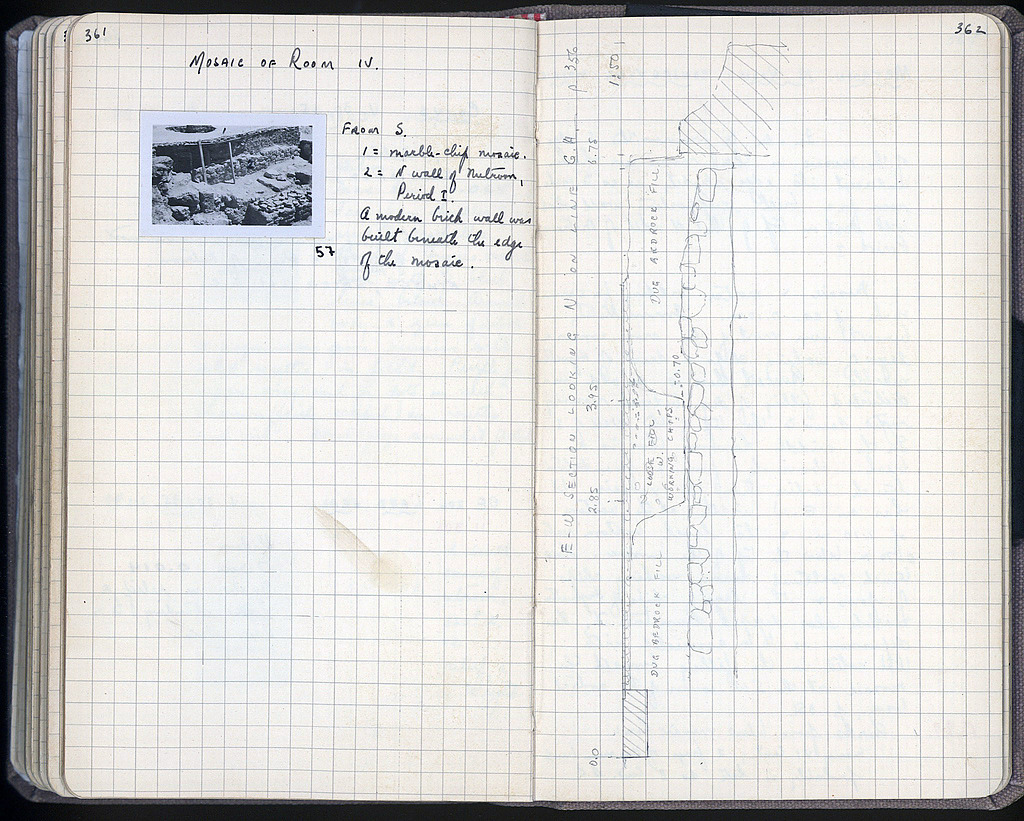 361
MOSAIC OF ROOM IV.
FROM S.
1 = marble-chip mosaic.
2 = N wall of
Period I.
A modern brick wall was
built beneath the edge
of the mosaic.
57
362
E-W SECTION LOOKING N ON LINE G.H. P 356
1:50
0.0
2.85
3.95
6.75
DUG BEDROCK FILL
LOOSE FILL
W.
WORKING CHIPS
-0.70
DUG BEDROCK FILL